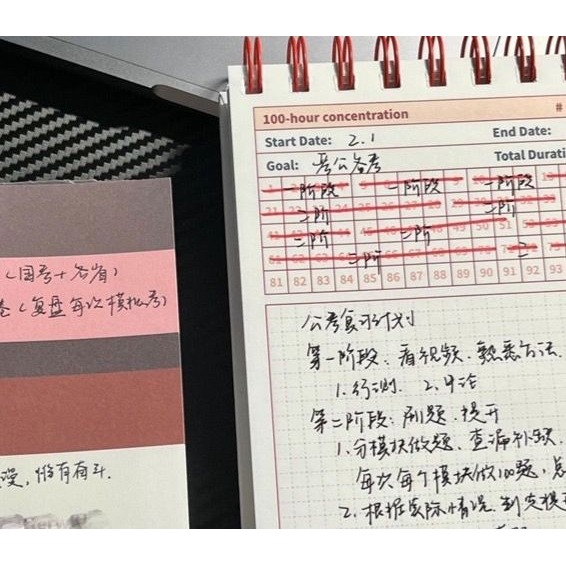 (国考+各省)
(复盘每次模拟考)
100-hour concentration #
Start Date: 2.1 End Date:
Goal: 考公备考 Total Durati
一阶段 一阶段 一阶段
二阶 二阶
二阶 二阶
二阶 二
81 82 83 84 85 86 87 88 89 90 91 92 93
公考复习计划
第一阶段: 看视频、熟悉方法.
1.行测. 2.申论
第二阶段: 刷题、提升
1.分模块做题、查漏补缺.
每次每个模块做100题,总
2.根据实际情况, 制定模